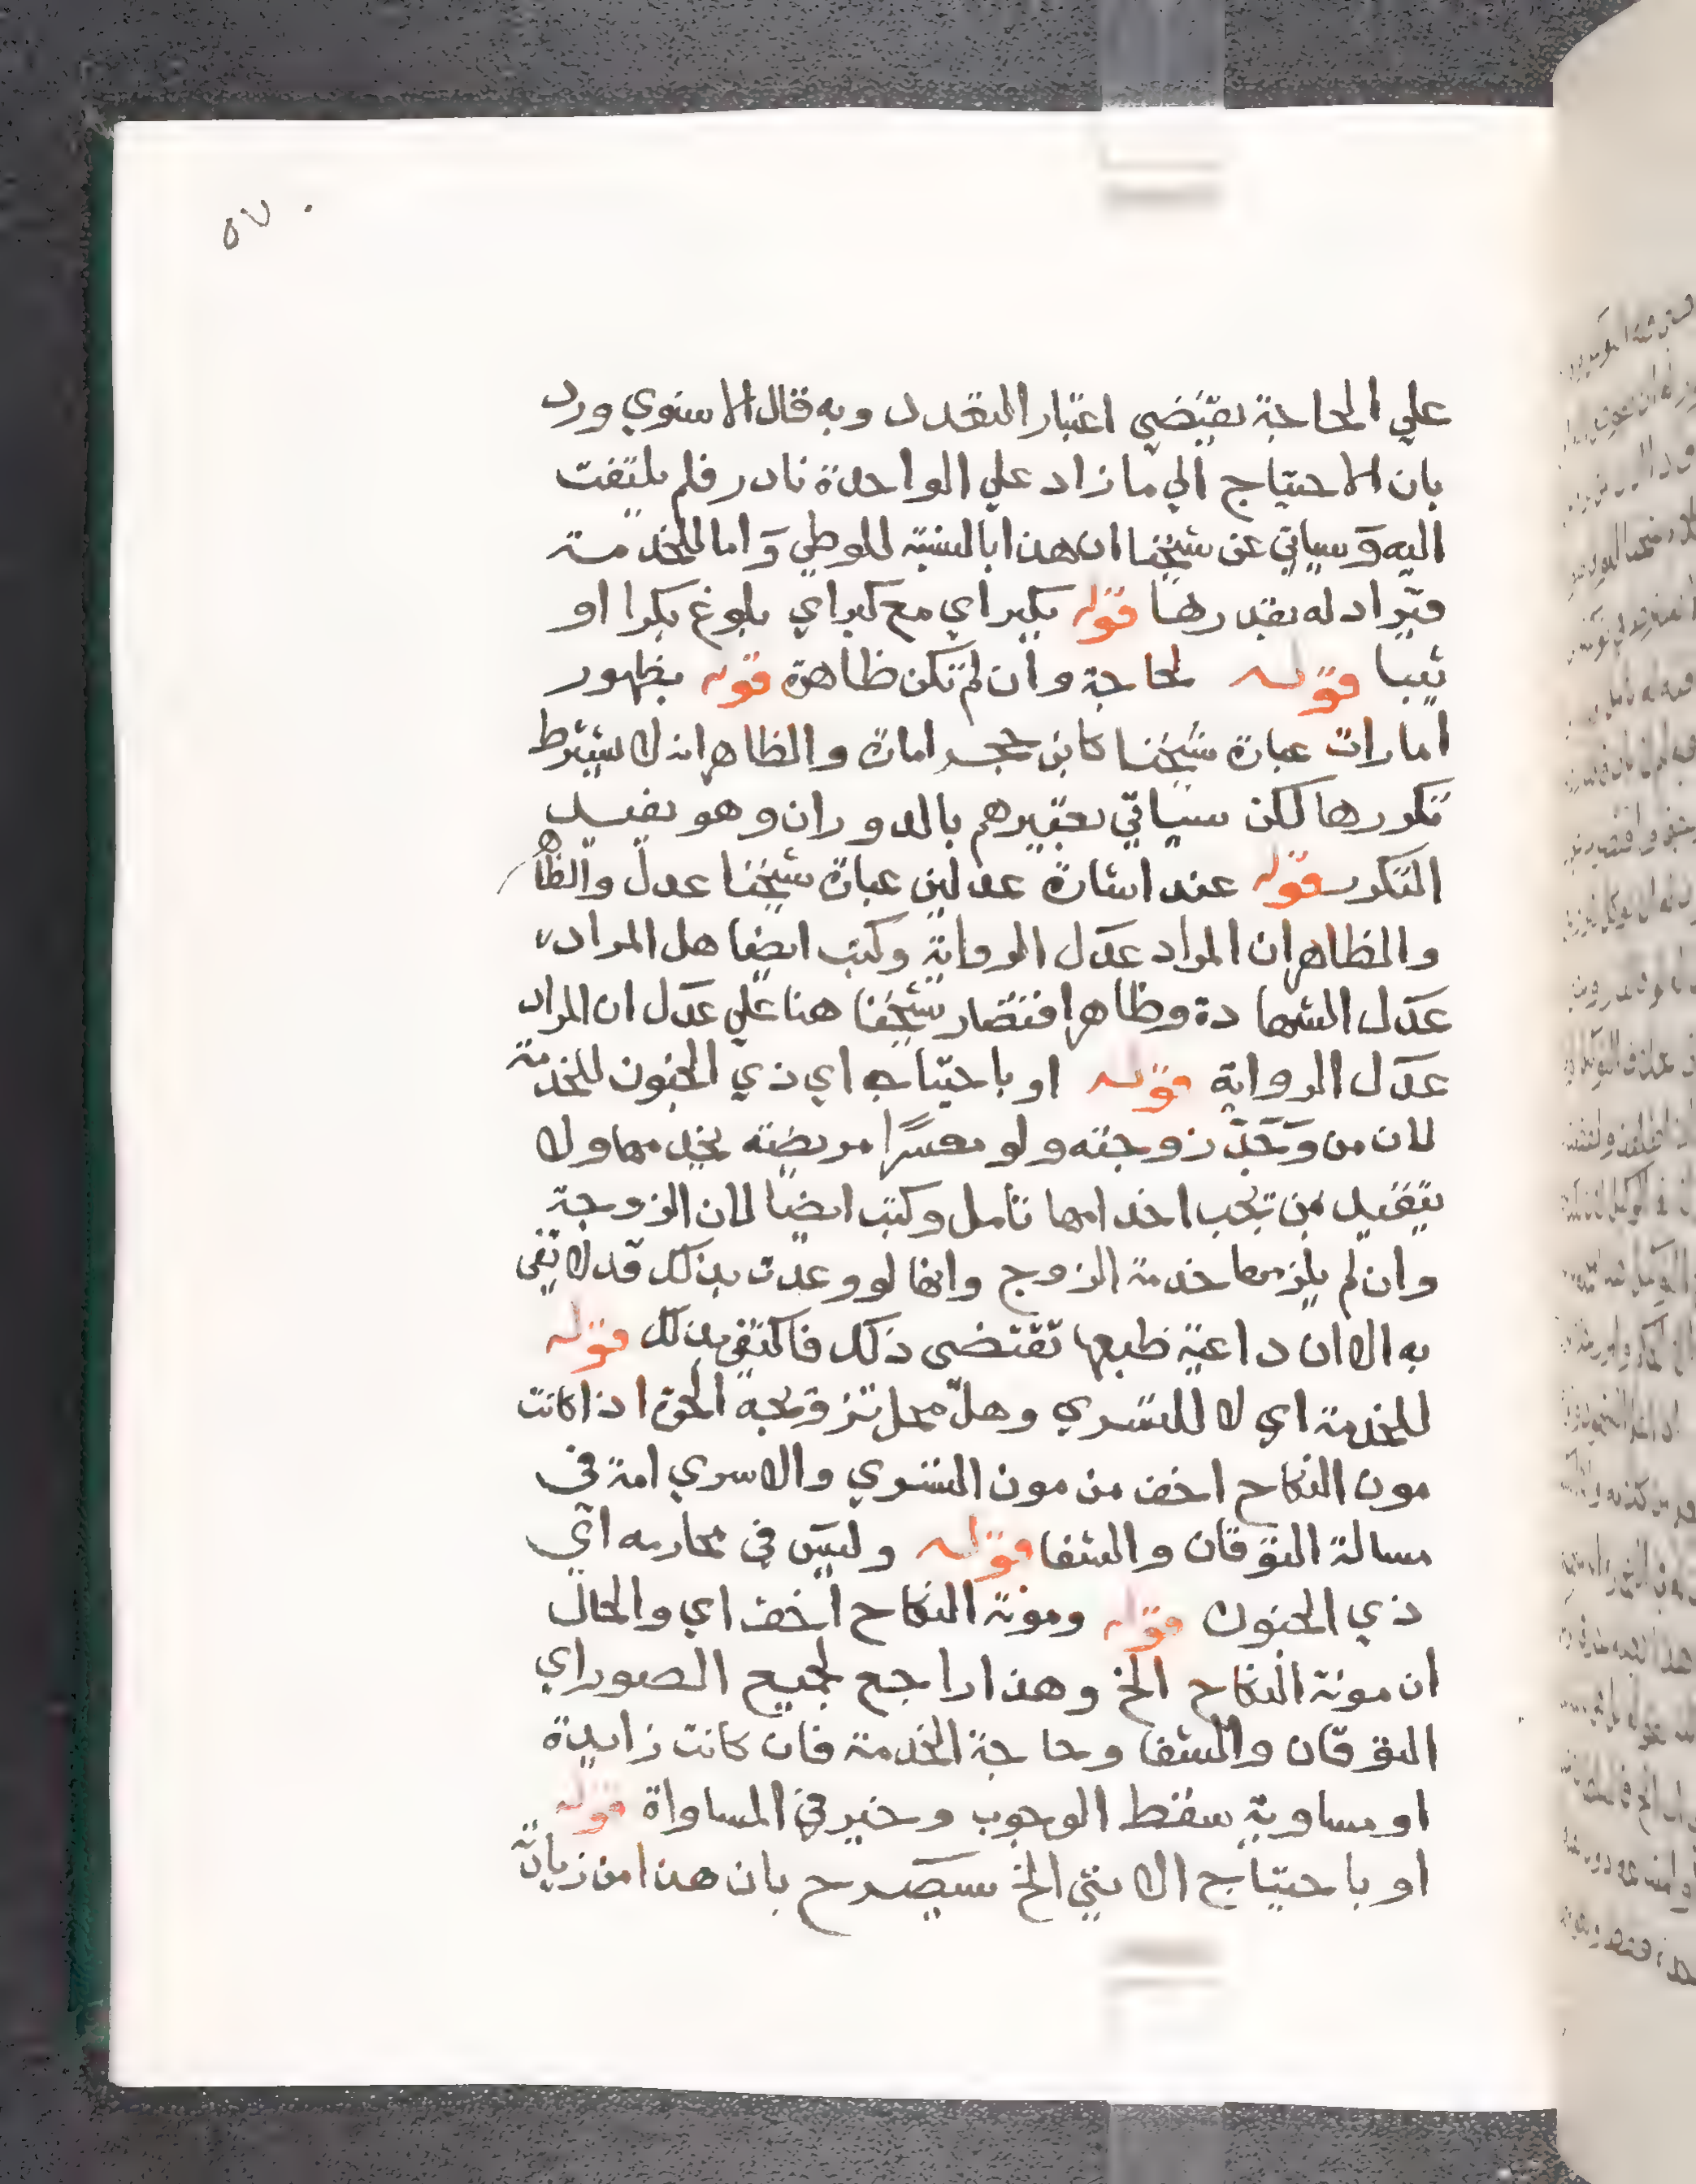 ٥٧
علي الحاجة يقتضي اعتبار التعدد وبه قال الاسنوي ورد
بان الاحتياج الي ما زاد علي الواحدة نادر فلم يلتفت
اليه وسياتي عن شيخنا ان هذا بالنسبة للوطي واما للخدمة
فيزاد له بقدرها قوله بكبر اي مع كبر اي بلوغ بكرا او
ثيبا قوله لحاجة وان لم تكن ظاهرة قوله بظهور
امارات عبارة شيخنا كابن حجر امارة والظاهر انه لا يشترط
تكررها لكن سياتي تعبيرهم بالدوران وهو يفيد
التكرر قوله عند اشارة عدلين عبارة شيخنا عدل والظاهر
والظاهر ان المراد عدل الرواية وكتب ايضا هل المراد
عدل الشهادة وظاهر اقتصار شيخنا هنا علي عدل ان المراد
عدل الرواية قوله او باحتياجه اي ذي الجنون للخدمة
لان من وجد زوجته ولو معسرا مريضته يخدمها ولا
يتقيد بمن تجب اخدامها تامل وكتب ايضا لان الزوجة
وان لم يلزمها خدمة الزوج وانها لو وعدت بذلك قد لا تفي
به الا ان داعية طبعها تقتضي ذلك فاكتفي بذلك قوله
للخدمة اي لا للتسري وهل محل تزويجه الحرة اذا كانت
مون النكاح اخف من مون التسري والا سري امة في
مسالة التوقان والشفا قوله وليس في محارمه اي
ذي الجنون قوله ومونة النكاح اخف اي والحال
ان مونة النكاح الخ وهذا راجع لجميع الصور اي
التوقان والشفا وحاجة الخدمة فان كانت زايدة
او مساوية سقط الوجوب وخير في المساواة قوله
او باحتياج الانثي الخ سيصرح بان هذا من زيادته